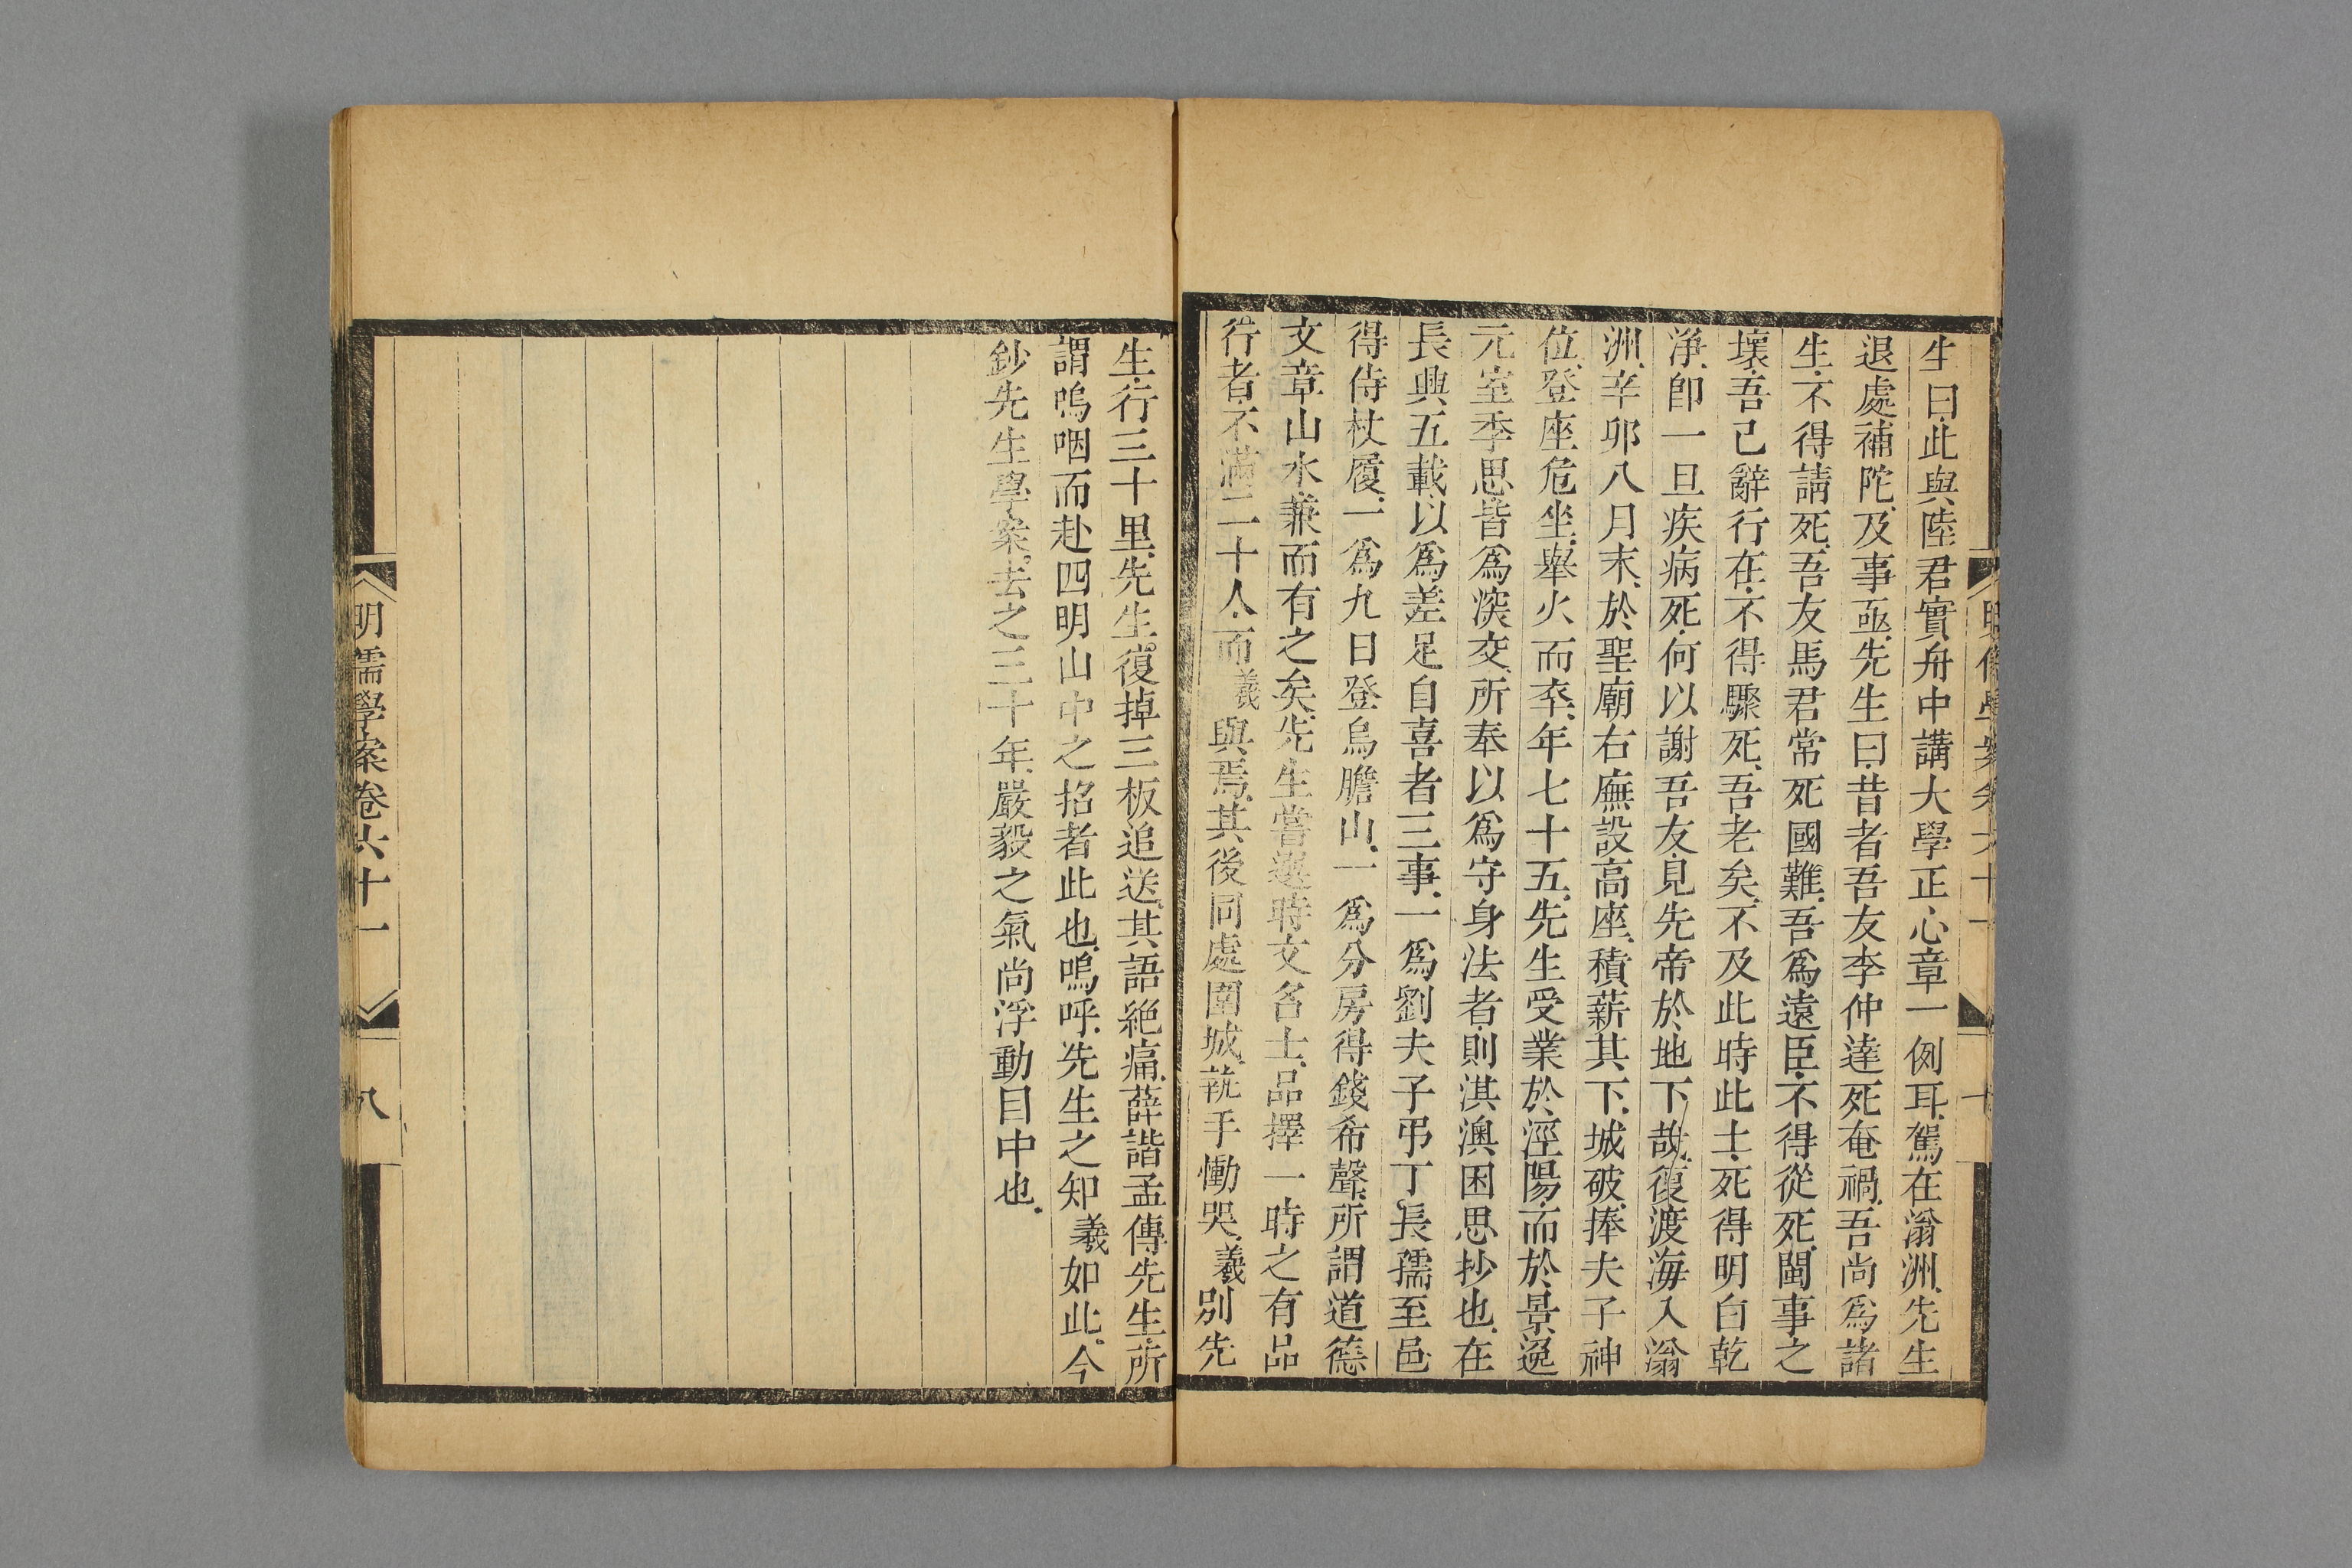 生曰、此與陸君實舟中講大學正心章一例耳、駕在滃洲、先生
退處補陀、及事亟、先生曰、昔者吾友李仲達死奄禍、吾尚爲諸
生、不得請死、吾友馬君常死國難、吾爲遠臣、不得從死、閩事之
壞、吾已辭行在、不得驟死、吾老矣、不及此時此土、死得明白乾
淨、卽一旦疾病死、何以謝吾友、見先帝於地下哉、復渡海入滃
洲、辛卯八月末、於聖廟右廡設高座、積薪其下、城破、捧夫子神
位、登座危坐、舉火而卒、年七十五、先生受業於涇陽、而於景逸
元室季思皆爲深交、所奉以爲守身法者、則淇澳困思抄也、在
長興五載、以爲差足自喜者三事、一爲劉夫子弔丁長孺至邑
得侍杖履、一爲九日登烏膽山、一爲分房得錢希聲、所謂道德
文章山水、兼而有之矣、先生嘗選時文名士、品擇一時之有品
行者、不滿二十人、而羲與焉、其後同處圍城、執手慟哭、羲別先
生、行三十里、先生復掉三板追送、其語絕痛、薛諧孟傳先生、所
謂嗚咽而赴四明山中之招者此也、嗚呼、先生之知羲如此、今
鈔先生學案、去之三十年、嚴毅之氣尚浮動目中也、
明儒學案卷六十一
八